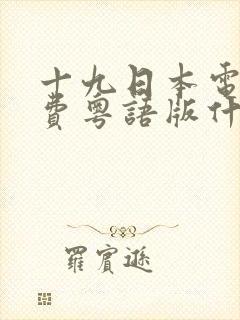 十九日本電
費粵語版什
羅賓遜